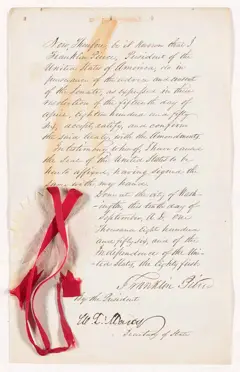 Now, Therefore, be it known that I
Franklin Pierce, President of the
United States of America, do in
pursuance of the advice and consent
of the Senate, as expressed in their
resolution of the fifteenth day of
April, eighteen hundred and fifty
six, accept, ratify, and confirm
the said treaty, with the amendments.
In testimony whereof I have caused
the Seal of the United States to be
hereto affixed, having signed the
same with my hand.
Done at the city of Wash-
ington, this tenth day of
September, A.D. one
thousand eight hundred
and fifty six, and of the
Independence of the Uni-
ted States, the eighty first.
Franklin Pierce
By the President
W. L. Marcy
Secretary of State